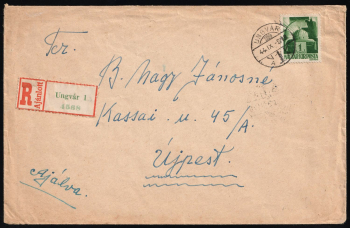 UNGVÁR
44.IX.
1
MAGYAR POSTA
Tcs.
B. Nagy Jánosné
Kassai u. 45/A.
Újpest.
R
Ajánlott
Ungvár 1
Ajálva.